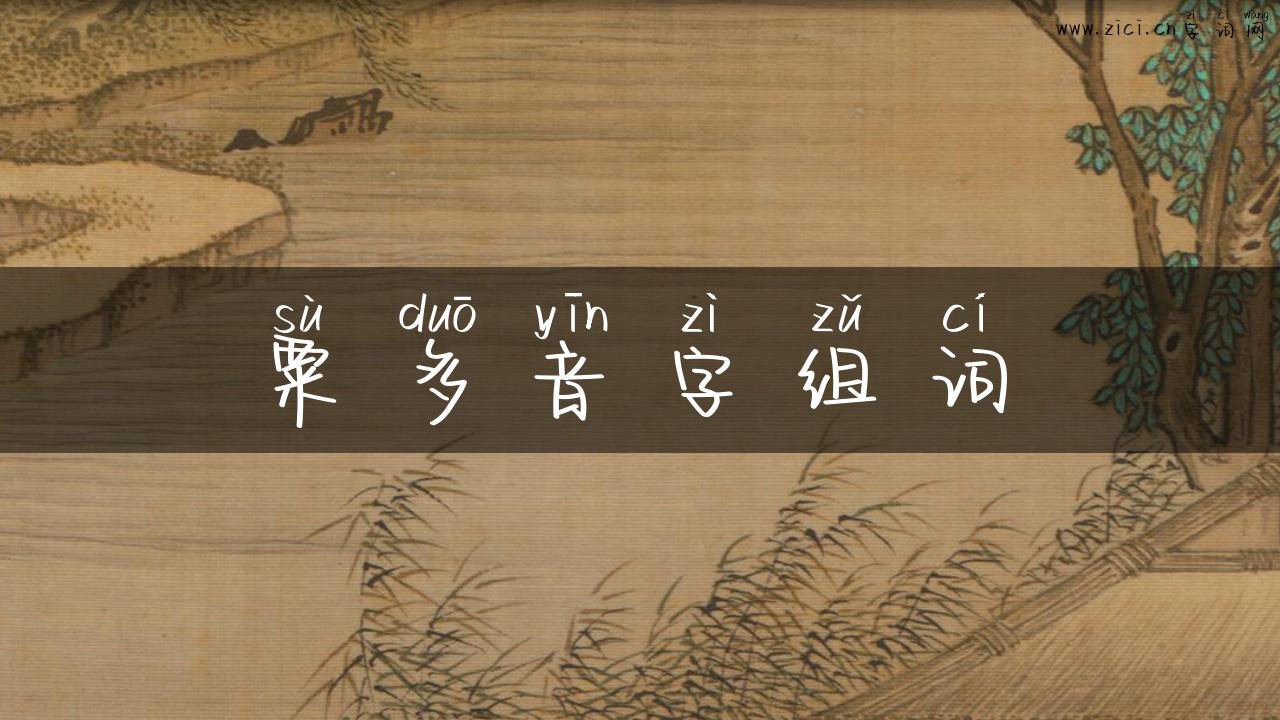 zì cí wǎng
www.zici.cn字词网
sù duō yīn zì zǔ cí
粟多音字组词